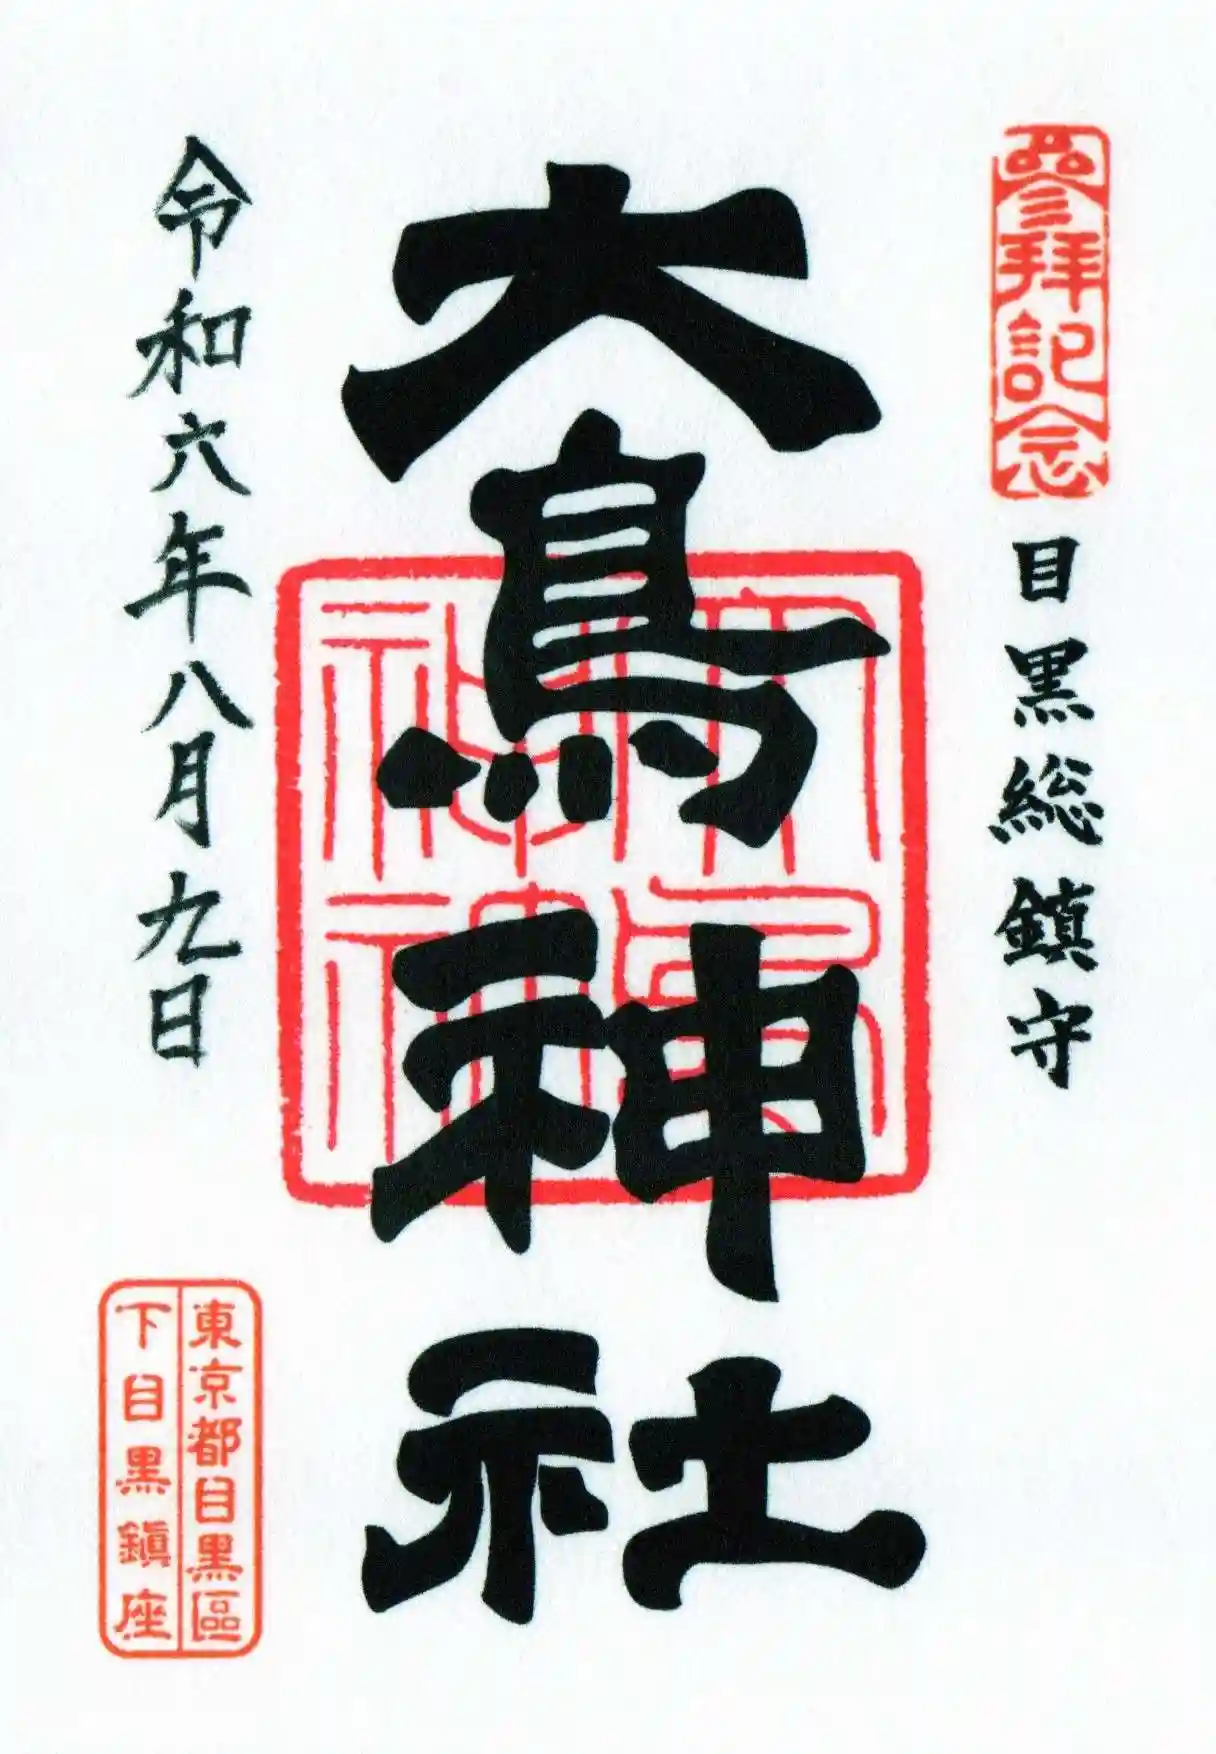 參拜記念
目黒総鎮守
大鳥神社
令和六年八月九日
東京都目黒區
下目黒鎮座